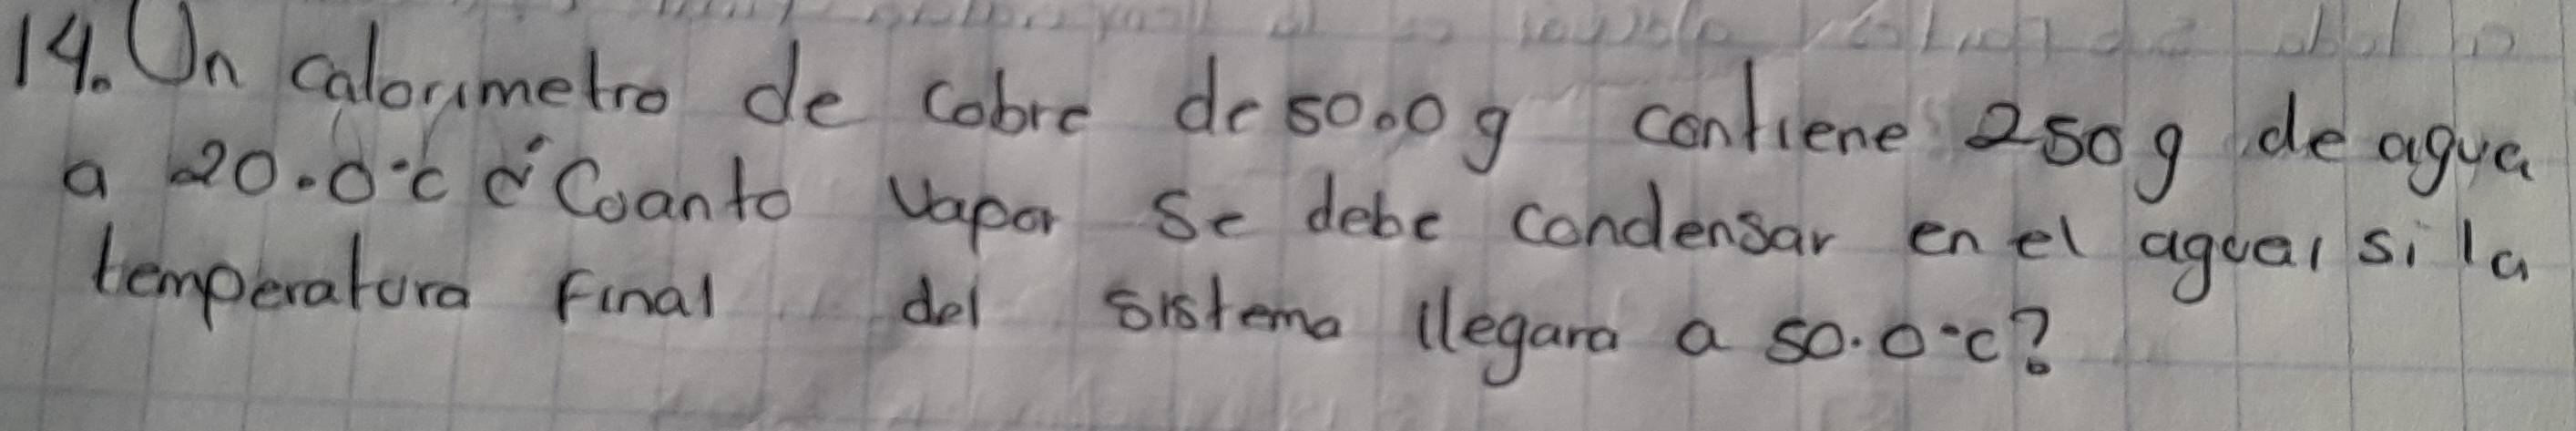 14. Un calorimetro de cobre de 50.0 g contiene 250 g de agua
a 20.0°C ¿Cuanto vapor se debe condensar en el agua, si la
temperatura final del sistema llegara a 50.0°C?